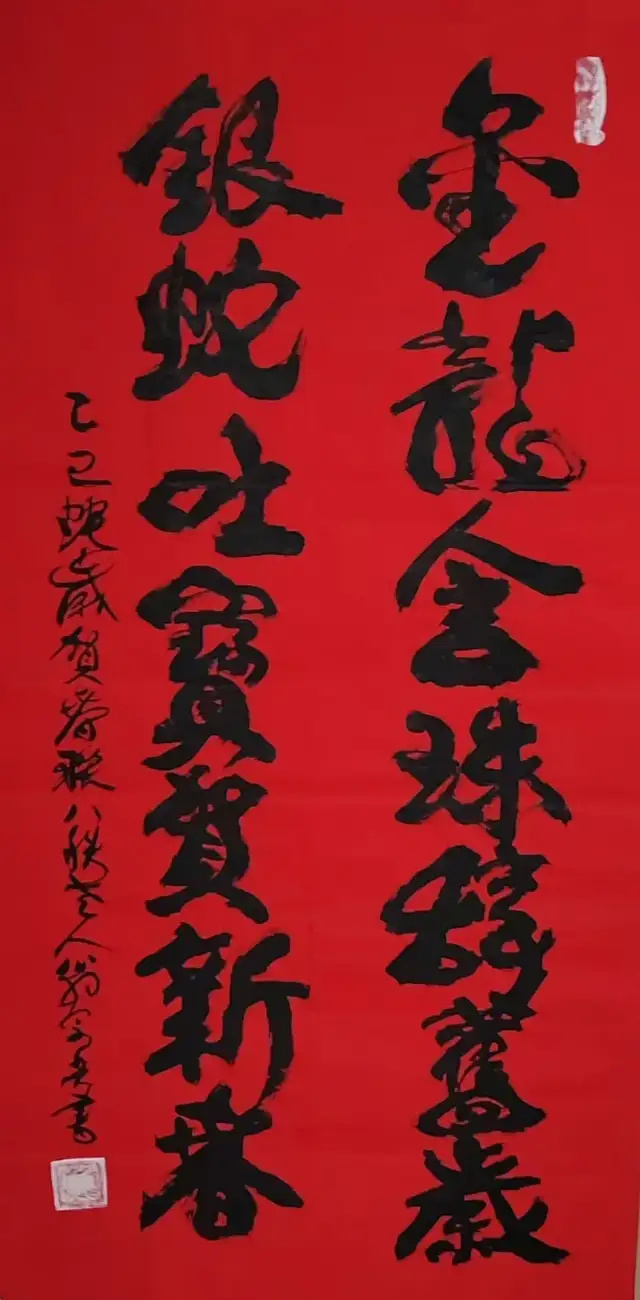 金龍含珠辞舊歲
銀蛇吐寶賀新春
乙巳蛇歲賀春联八秩老人翁